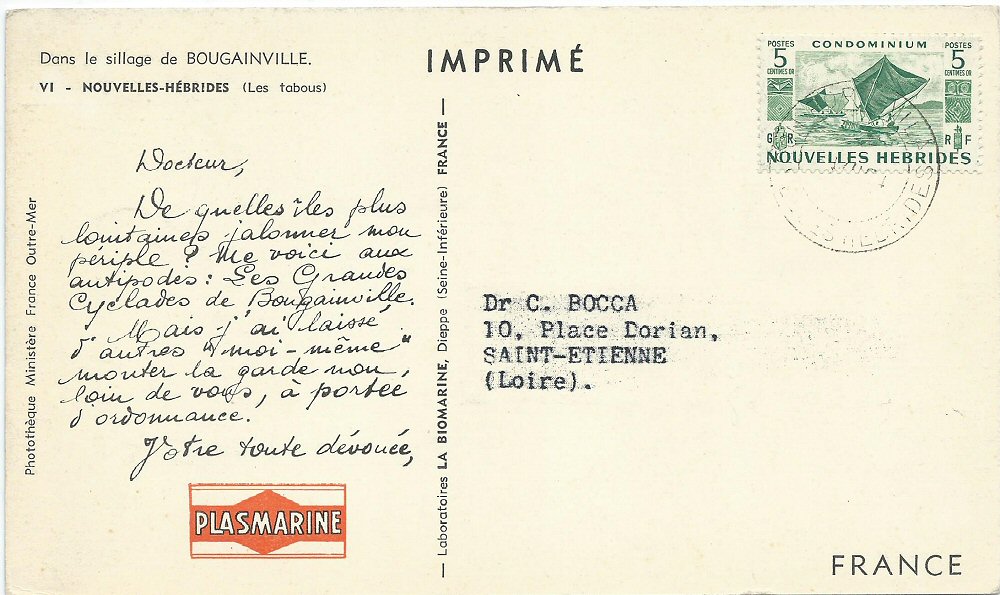 Dans le sillage de BOUGAINVILLE.
VI - NOUVELLES-HÉBRIDES (Les tabous)
Docteur,
De quelles îles plus
lointaines jalonner mon
périple ? Me voici aux
antipodes : Les Grandes
Cyclades de Bougainville.
Mais j'ai laissé
d'autres "moi-même"
monter la garde non
loin de vous, à portée
d'ordonnance.
Vôtre toute dévouée,
PLASMARINE
Photothèque Ministère France Outre-Mer
— Laboratoires LA BIOMARINE, Dieppe (Seine-Inférieure) FRANCE —
IMPRIMÉ
POSTES CONDOMINIUM POSTES
5 5
CENTIMES OR CENTIMES OR
G R R F
NOUVELLES HEBRIDES
Dr C. BOCCA
10, Place Dorian,
SAINT-ETIENNE
(Loire).
FRANCE